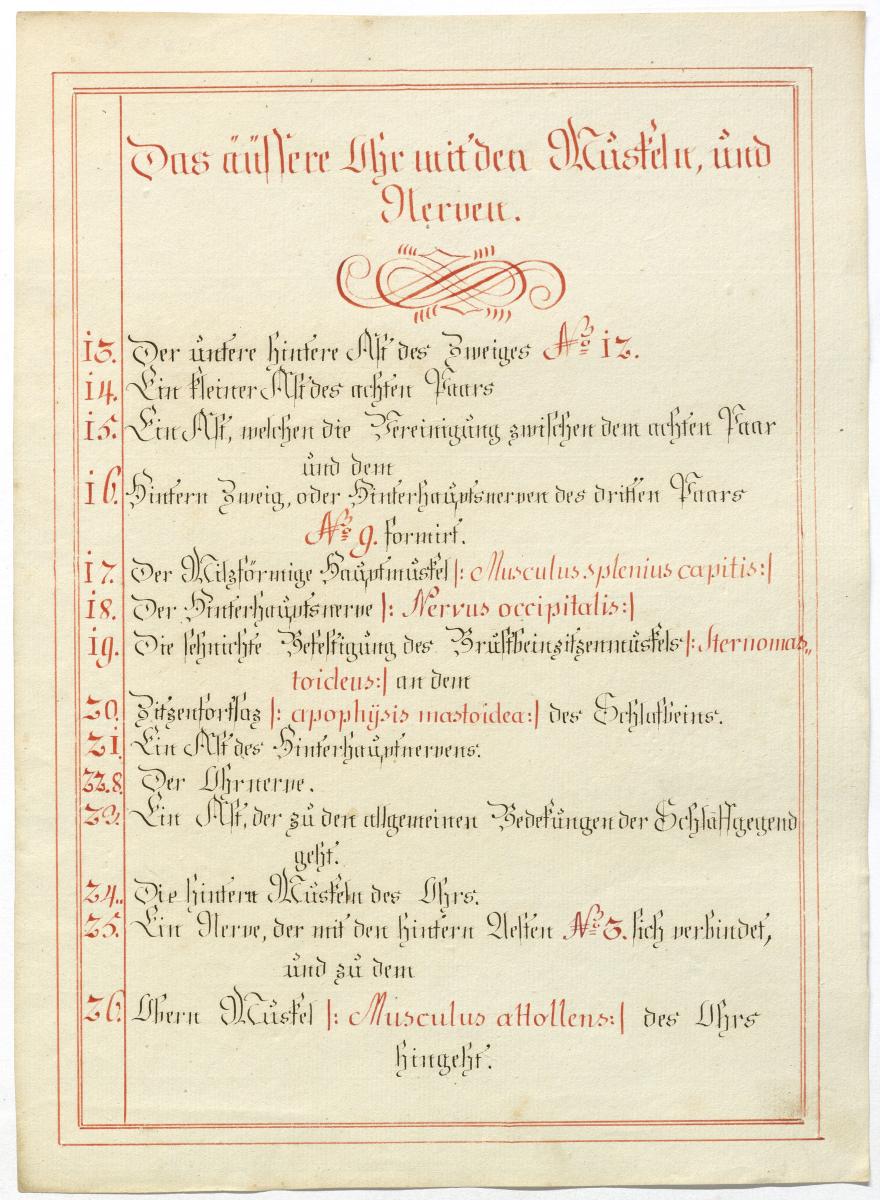 Das äüssere Ohr mit den Můskeln, ůnd
Nerven.
13. Der ůntere hintere Ast des Zweiges No 12.
14. Ein kleiner Ast des achten Paars
15. Ein Ast, welchen die Vereinigůng zwischen dem achten Paar
ůnd dem
16. Hintern Zweig, oder Hinterhaůptsnerven des dritten Paars
No 9. formirt.
17. Der Milzförmige Haůptmůskel |: Musculus splenius capitis:|
18. Der Hinterhaůptsnerve |: Nervus occipitalis:|
19. Die sehnichte Befestigůng des Brůstbeinzitzenmůskels |: Sternomas„
toideus:| an dem
20. Zitzenfortsaz |: apophÿsis mastoidea:| des Schlafbeins.
21. Ein Ast des Hinterhaůptnervens.
22.8. Der Ohrnerve.
23. Ein Ast, der zů den allgemeinen Bedekůngen der Schlaffgegend
geht.
24. Die hintern Můskeln des Ohrs.
25. Ein Nerve, der mit den hintern Aesten No 3. sich verbindet,
ůnd zů dem
26. Obern Můskel |: Musculus attollens:| des Ohrs
hingeht.